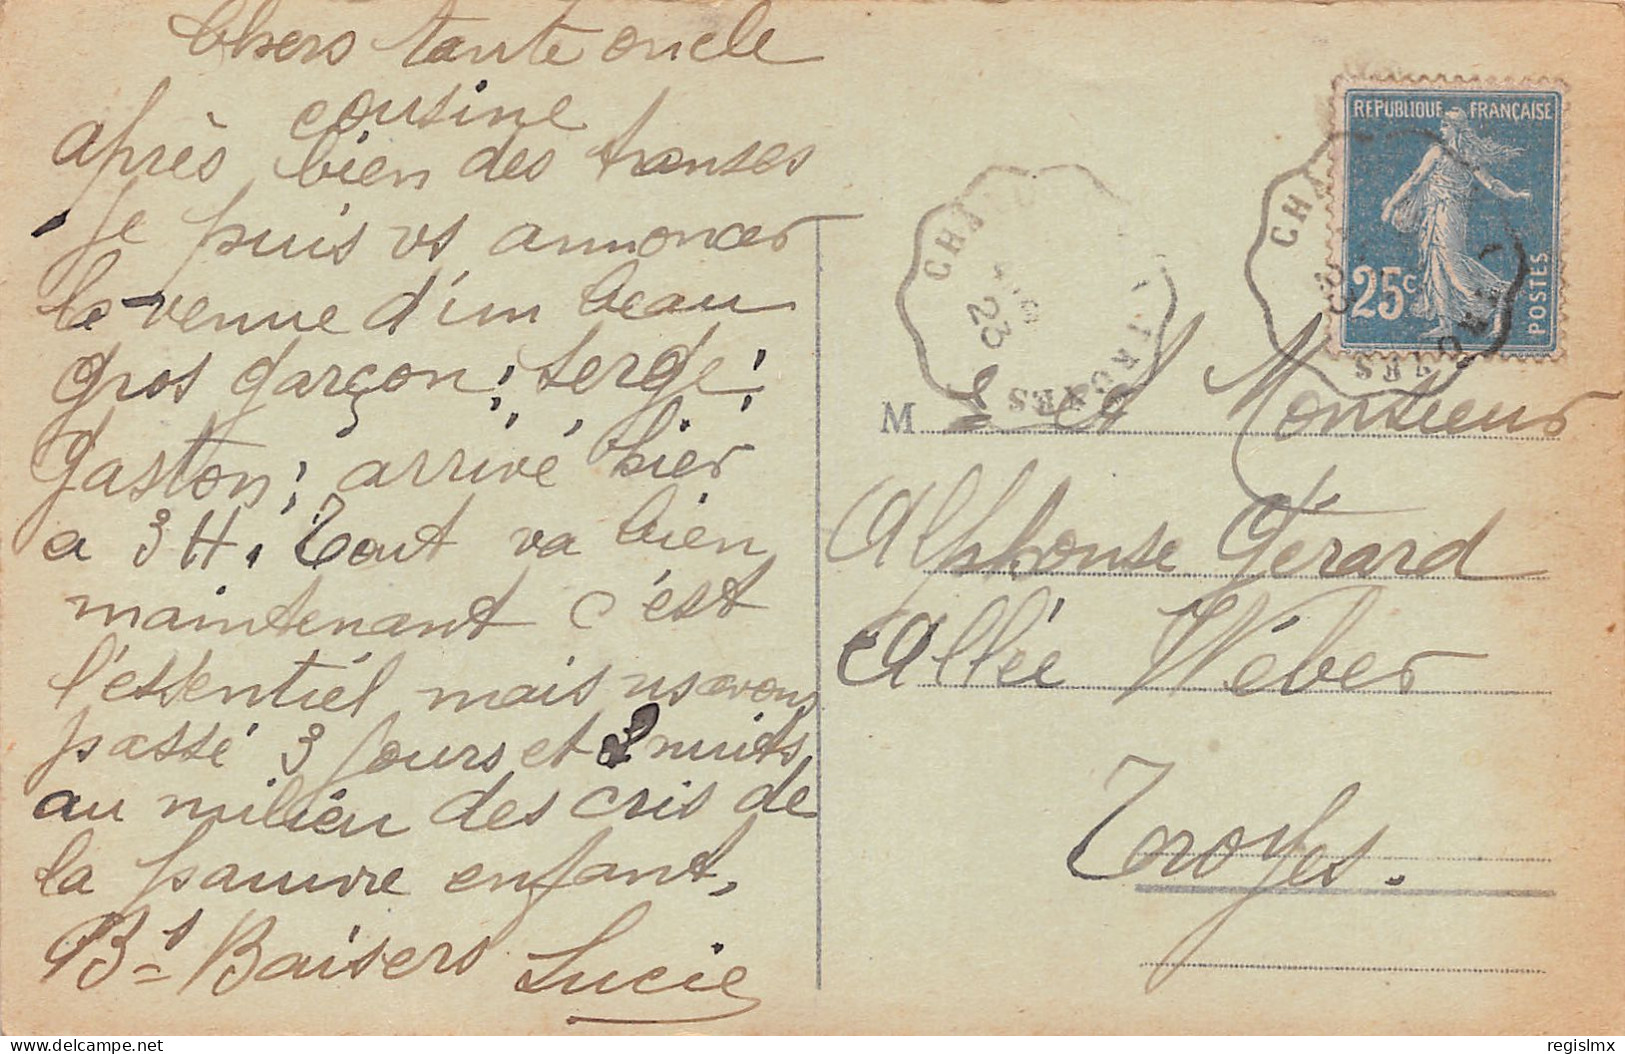 Chers tante oncle
cousine
après bien des transes
je puis vs annoncer
la venue d'un beau
gros garçon; serge;
Gaston; arrivé hier
a 3 H. Tout va bien
maintenant c'est
l'essentiel mais ns avons
passé 3 jours et 2 nuits
au milieu des cris de
la pauvre enfant.
Bs Baisers Lucie
REPUBLIQUE FRANÇAISE
25c
POSTES
23
M et Monsieur
Alphonse Gérard
Allée Wéber
Troyes.
delcampe.net
regislmx